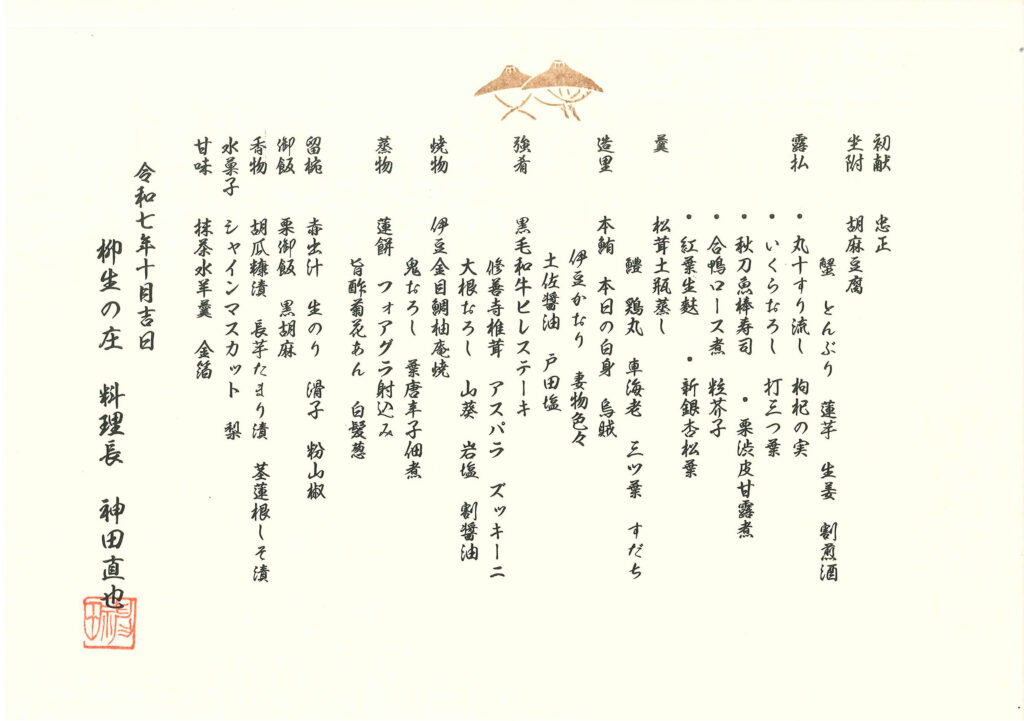 初献　忠正
坐附　胡麻豆腐
蟹　とんぶり　蓮芋　生姜　割煎酒
露払　・丸十すり流し　枸杞の実
・いくらおろし　打三つ葉
・秋刀魚棒寿司　・栗渋皮甘露煮
・合鴨ロース煮　粒芥子
・紅葉生麩　・新銀杏松葉
羹　松茸土瓶蒸し
鱧　鶏丸　車海老　三ツ葉　すだち
造里　本鮪　本日の白身　烏賊
伊豆かおり　妻物色々
土佐醤油　戸田塩
強肴　黒毛和牛ヒレステーキ
修善寺椎茸　アスパラ　ズッキーニ
大根おろし　山葵　岩塩　割醤油
焼物　伊豆金目鯛柚庵焼
鬼おろし　葉唐辛子佃煮
蒸物　蓮餅　フォアグラ射込み
旨酢菊花あん　白髪葱
留椀　赤出汁　生のり　滑子　粉山椒
御飯　栗御飯　黒胡麻
香物　胡瓜糠漬　長芋たまり漬　茎蓮根しそ漬
水菓子　シャインマスカット　梨
甘味　抹茶水羊羹　金箔
令和七年十月吉日
柳生の庄　料理長　神田直也